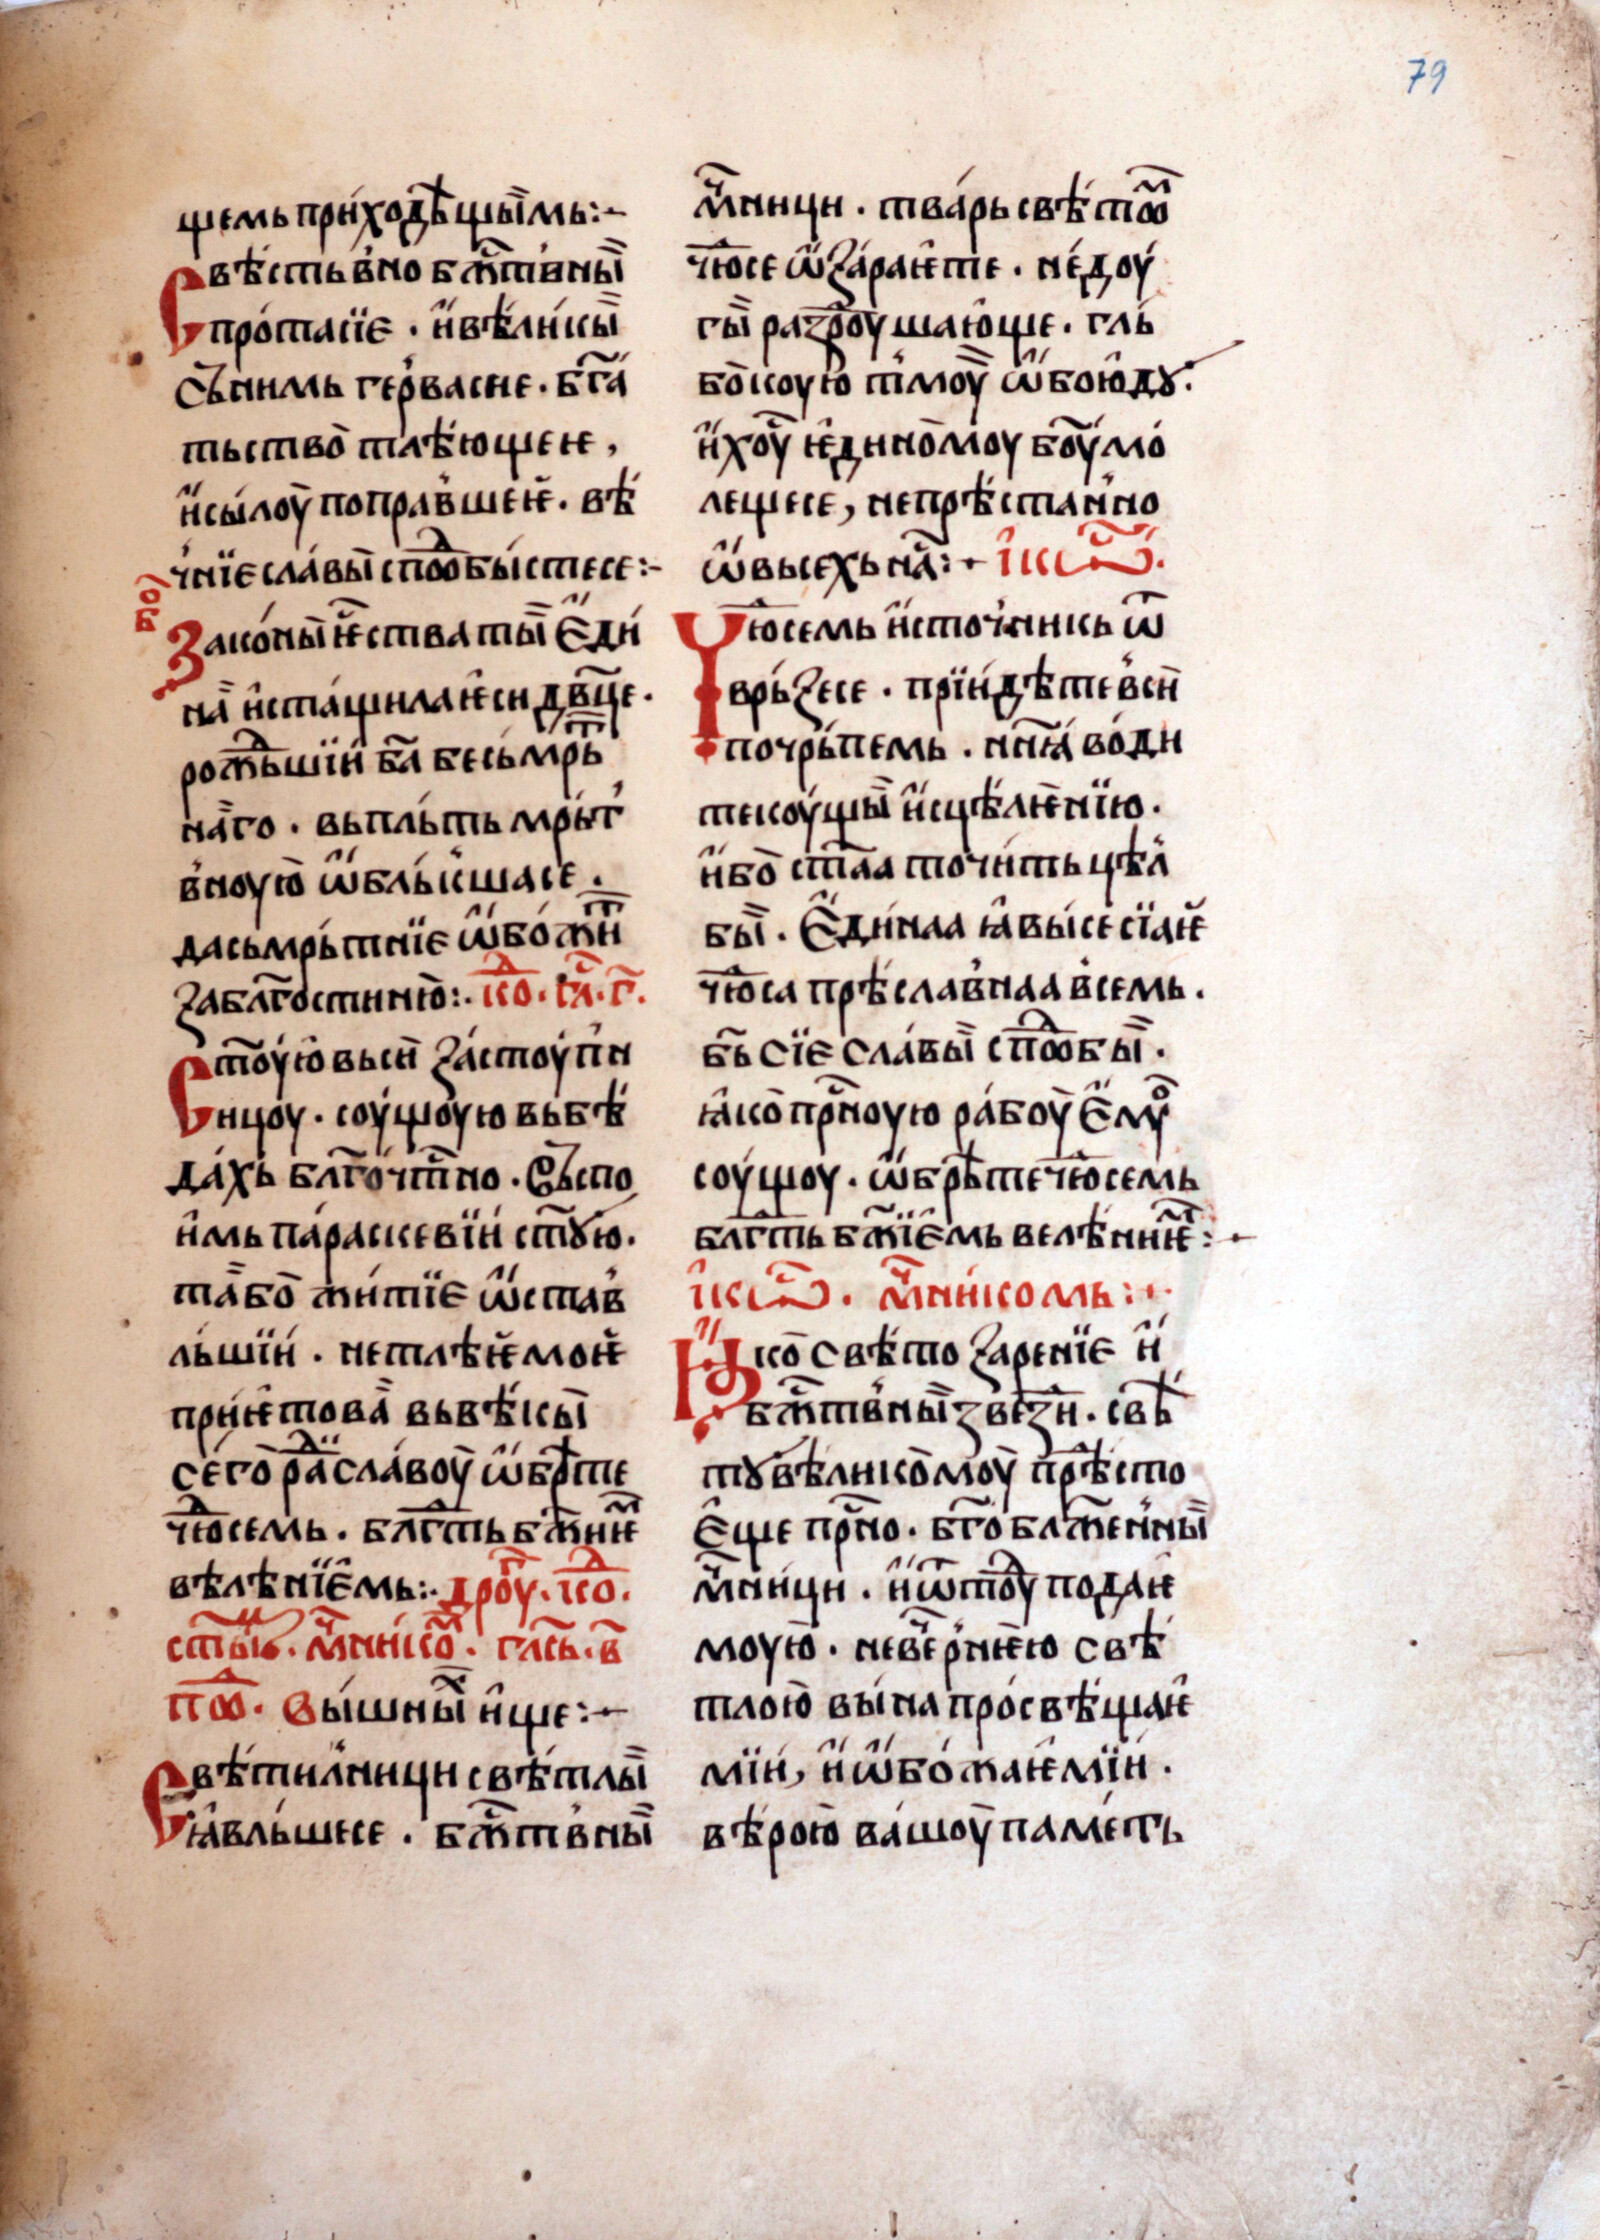 79
щемь прⷩ҇ходѣщыи҆мь:~
Свѣстьвно бж҃твныи
протасїе · и҆вѣликыи
Сънимь герв҆асие · бг҃а
тьство тлѣющеѥ,
и҆сылоу поправ҆шеѥ · вѣ
чнїе славы спⷪ҇добыстесе:~
бо҃
Законы ѥ҆ства ты Е҆ди
на и҆стащила ѥ҆си дв҃це ·
рожⷣьшїи ба҃ бесьмрⷮь
наго · вьпльть мрьт
вноую ѡ҆бльк҆шасе ·
дасьмрьтнїе ѡ҆божиⷮ
забл҃гостиню:· ко҃ⷣ · гл҃а · г҃ ·
Ст҃оую вьси застоуп҆ни
цоу · соущоую вьбѣ
дахь бл҃гочтⷭ҇но · Съпо
имь параскевїи ст҃ꙋю ·
та бо житїе ѡ҆став
льшїи · нетлѣѥмоѥ
приѥтова вьвѣкы
сего раⷣ славоу ѡ҆брѣте
чюⷣсемь · блгⷣть бж҃иѥмⷨ
вѣлѣнїе҆мь:· дроуⷢ · коⷣ ·
ст҃ыиⷯ · мⷱ҇нникоⷨ · глⷭ҇ь · в҃
поⷣⷪ · Вышныиⷯ ище:~
Свѣтил҆ници свѣтлыи
ꙗ҆вльшесе · бж҃твныи
мⷱ҇ници · тварь свѣтоⷨ
чюⷣсе ѡ҆заракѥте · недоу
гы разроушающе · гль
бокоую тмоу ѡ҆боюдꙋ ·
и҆хоу ѥ҆диномоу боу҃ мо
лещесе, непрѣстан҆но
ѡ҆вьсехь наⷭ҇:~ і҆коⷭ҇ ·
Чюсемь и҆сточ҆никь ѿ
врьзесе · прїидѣте в҆си
почрьпемь · нн҃ꙗ води
текоущыи и҆сцѣлѥнїю ·
и҆бо ст҃аа точить цѣл
бы · Е҆динаа ꙗ҆высе сїаѥ
чюⷣса прѣславнаа в҆семь ·
бь҃ сїе славы спⷪ҇добы ·
ꙗ҆ко прⷭ҇ноую рабоу Е҆моу
соущоу · ѡ҆брѣте чюⷣсемь
блгⷣть бж҃їе҆мь велѣниѥⷨ:~
і҆коⷭ҇ · мⷱ҇нникомь:~
Ꙗ҆ко свѣтозарениїе и҆
бж҃твныи звѣзди · свѣ
тꙋ вѣликомоу прⷭ҇ѣсто
Е҆ще прⷭ҇но · бг҃облаженныи
мⷱ҇ници · и҆ѿтоⷣу подаѥ
моую · невечⷭ҇ернѥю свѣ
тлою вына просвѣщаѥ
мїи, и҆ѡ҆божаѥмїи ·
вѣрою вашоу паметь